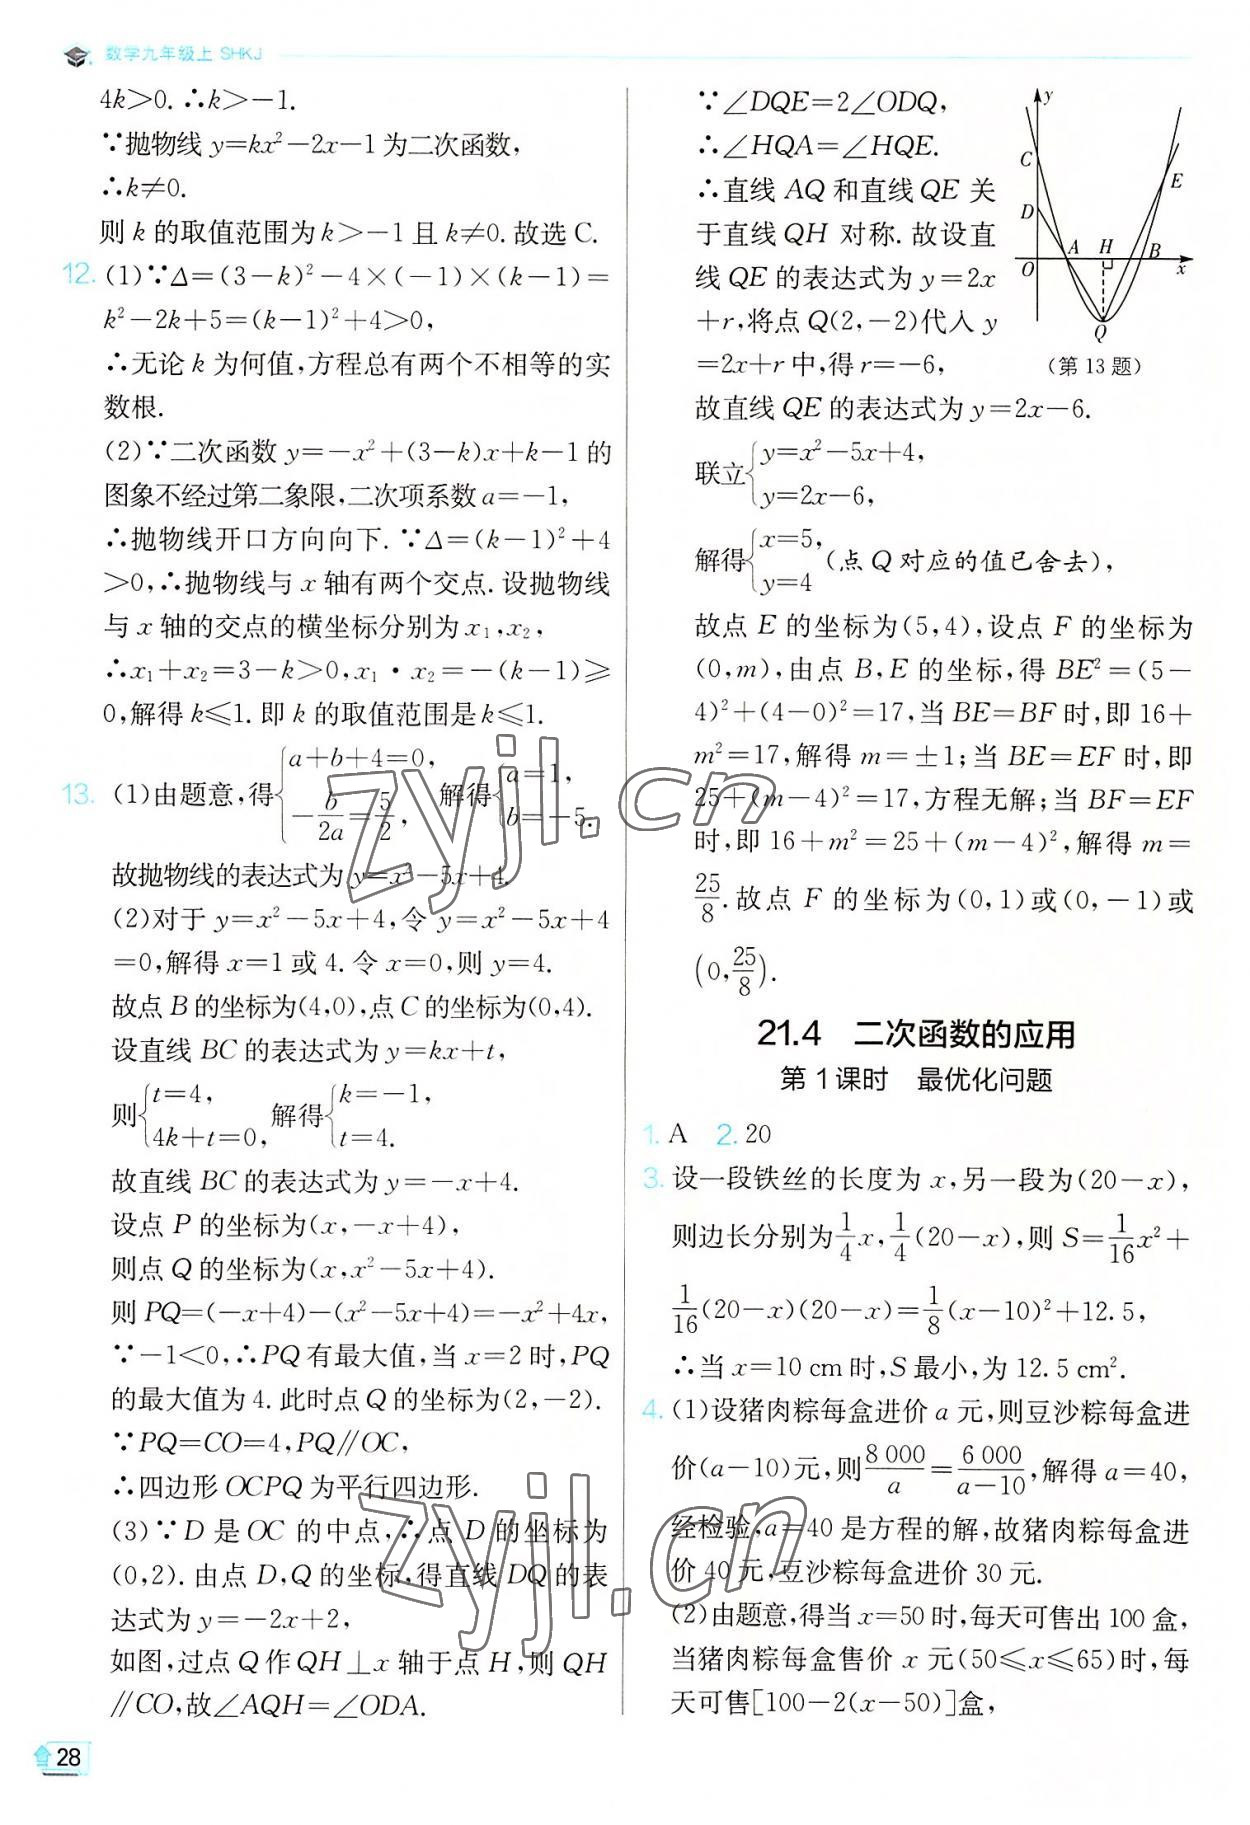 数学九年级上 SHKJ
4k>0. ∴k>-1.
∵抛物线 y=kx²-2x-1 为二次函数,
∴k≠0.
则 k 的取值范围为 k>-1 且 k≠0. 故选 C.
12. (1)∵Δ=(3-k)²-4×(-1)×(k-1)=
k²-2k+5=(k-1)²+4>0,
∴无论 k 为何值,方程总有两个不相等的实
数根.
(2)∵二次函数 y=-x²+(3-k)x+k-1 的
图象不经过第二象限,二次项系数 a=-1,
∴抛物线开口方向向下. ∵Δ=(k-1)²+4
>0,∴抛物线与 x 轴有两个交点. 设抛物线
与 x 轴的交点的横坐标分别为 x₁,x₂,
∴x₁+x₂=3-k>0,x₁·x₂=-(k-1)≥
0,解得 k≤1. 即 k 的取值范围是 k≤1.
13. (1)由题意,得{a+b+4=0, -b/2a=5/2, 解得{a=1, b=-5.
故抛物线的表达式为 y=x²-5x+4.
(2)对于 y=x²-5x+4,令 y=x²-5x+4
=0,解得 x=1 或 4. 令 x=0,则 y=4.
故点 B 的坐标为(4,0),点 C 的坐标为(0,4).
设直线 BC 的表达式为 y=kx+t,
则{t=4, 4k+t=0, 解得{k=-1, t=4.
故直线 BC 的表达式为 y=-x+4.
设点 P 的坐标为(x,-x+4),
则点 Q 的坐标为(x,x²-5x+4).
则 PQ=(-x+4)-(x²-5x+4)=-x²+4x,
∵-1<0,∴PQ 有最大值,当 x=2 时,PQ
的最大值为 4. 此时点 Q 的坐标为(2,-2).
∵PQ=CO=4,PQ∥OC,
∴四边形 OCPQ 为平行四边形.
(3)∵D 是 OC 的中点,∴点 D 的坐标为
(0,2). 由点 D,Q 的坐标,得直线 DQ 的表
达式为 y=-2x+2,
如图,过点 Q 作 QH⊥x 轴于点 H,则 QH
∥CO,故∠AQH=∠ODA.
∵∠DQE=2∠ODQ,
∴∠HQA=∠HQE.
∴直线 AQ 和直线 QE 关
于直线 QH 对称. 故设直
线 QE 的表达式为 y=2x
+r,将点 Q(2,-2)代入 y
=2x+r 中,得 r=-6,
故直线 QE 的表达式为 y=2x-6.
y
C
E
D
A H B
O x
Q
(第 13 题)
联立{y=x²-5x+4, y=2x-6,
解得{x=5, y=4 (点 Q 对应的值已舍去),
故点 E 的坐标为(5,4),设点 F 的坐标为
(0,m),由点 B,E 的坐标,得 BE²=(5-
4)²+(4-0)²=17,当 BE=BF 时,即 16+
m²=17,解得 m=±1;当 BE=EF 时,即
25+(m-4)²=17,方程无解;当 BF=EF
时,即 16+m²=25+(m-4)²,解得 m=
25/8. 故点 F 的坐标为(0,1)或(0,-1)或
(0,25/8).
21.4 二次函数的应用
第 1 课时 最优化问题
1. A 2. 20
3. 设一段铁丝的长度为 x,另一段为(20-x),
则边长分别为1/4x,1/4(20-x),则 S=1/16x²+
1/16(20-x)(20-x)=1/8(x-10)²+12.5,
∴当 x=10 cm 时,S 最小,为 12.5 cm².
4. (1)设猪肉粽每盒进价 a 元,则豆沙粽每盒进
价(a-10)元,则8 000/a=6 000/a-10,解得 a=40,
经检验,a=40 是方程的解,故猪肉粽每盒进
价 40 元,豆沙粽每盒进价 30 元.
(2)由题意,得当 x=50 时,每天可售出 100 盒,
当猪肉粽每盒售价 x 元(50≤x≤65)时,每
天可售[100-2(x-50)]盒,
28
zyjl.cn
zyjl.cn